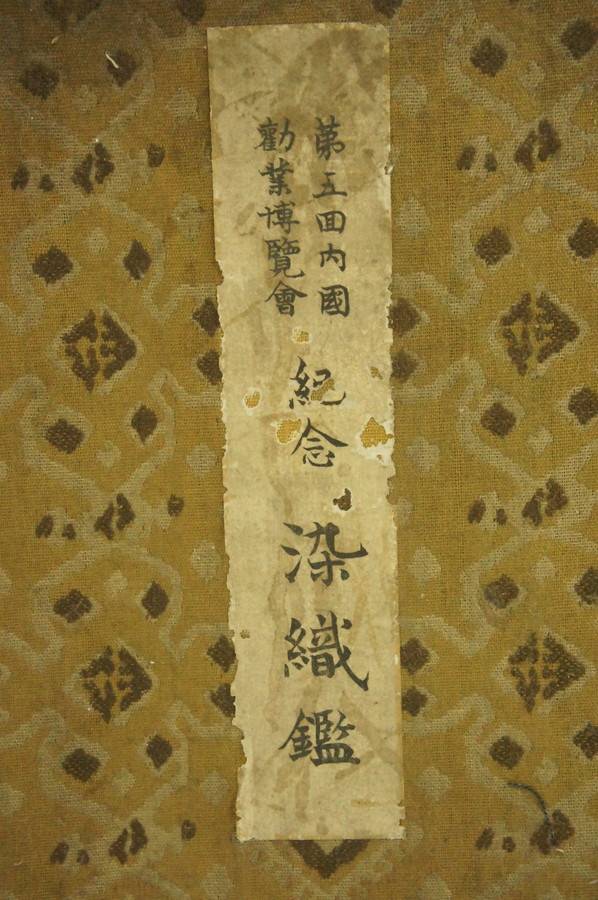 第五回内國
勸業博覽會
紀念
染織鑑